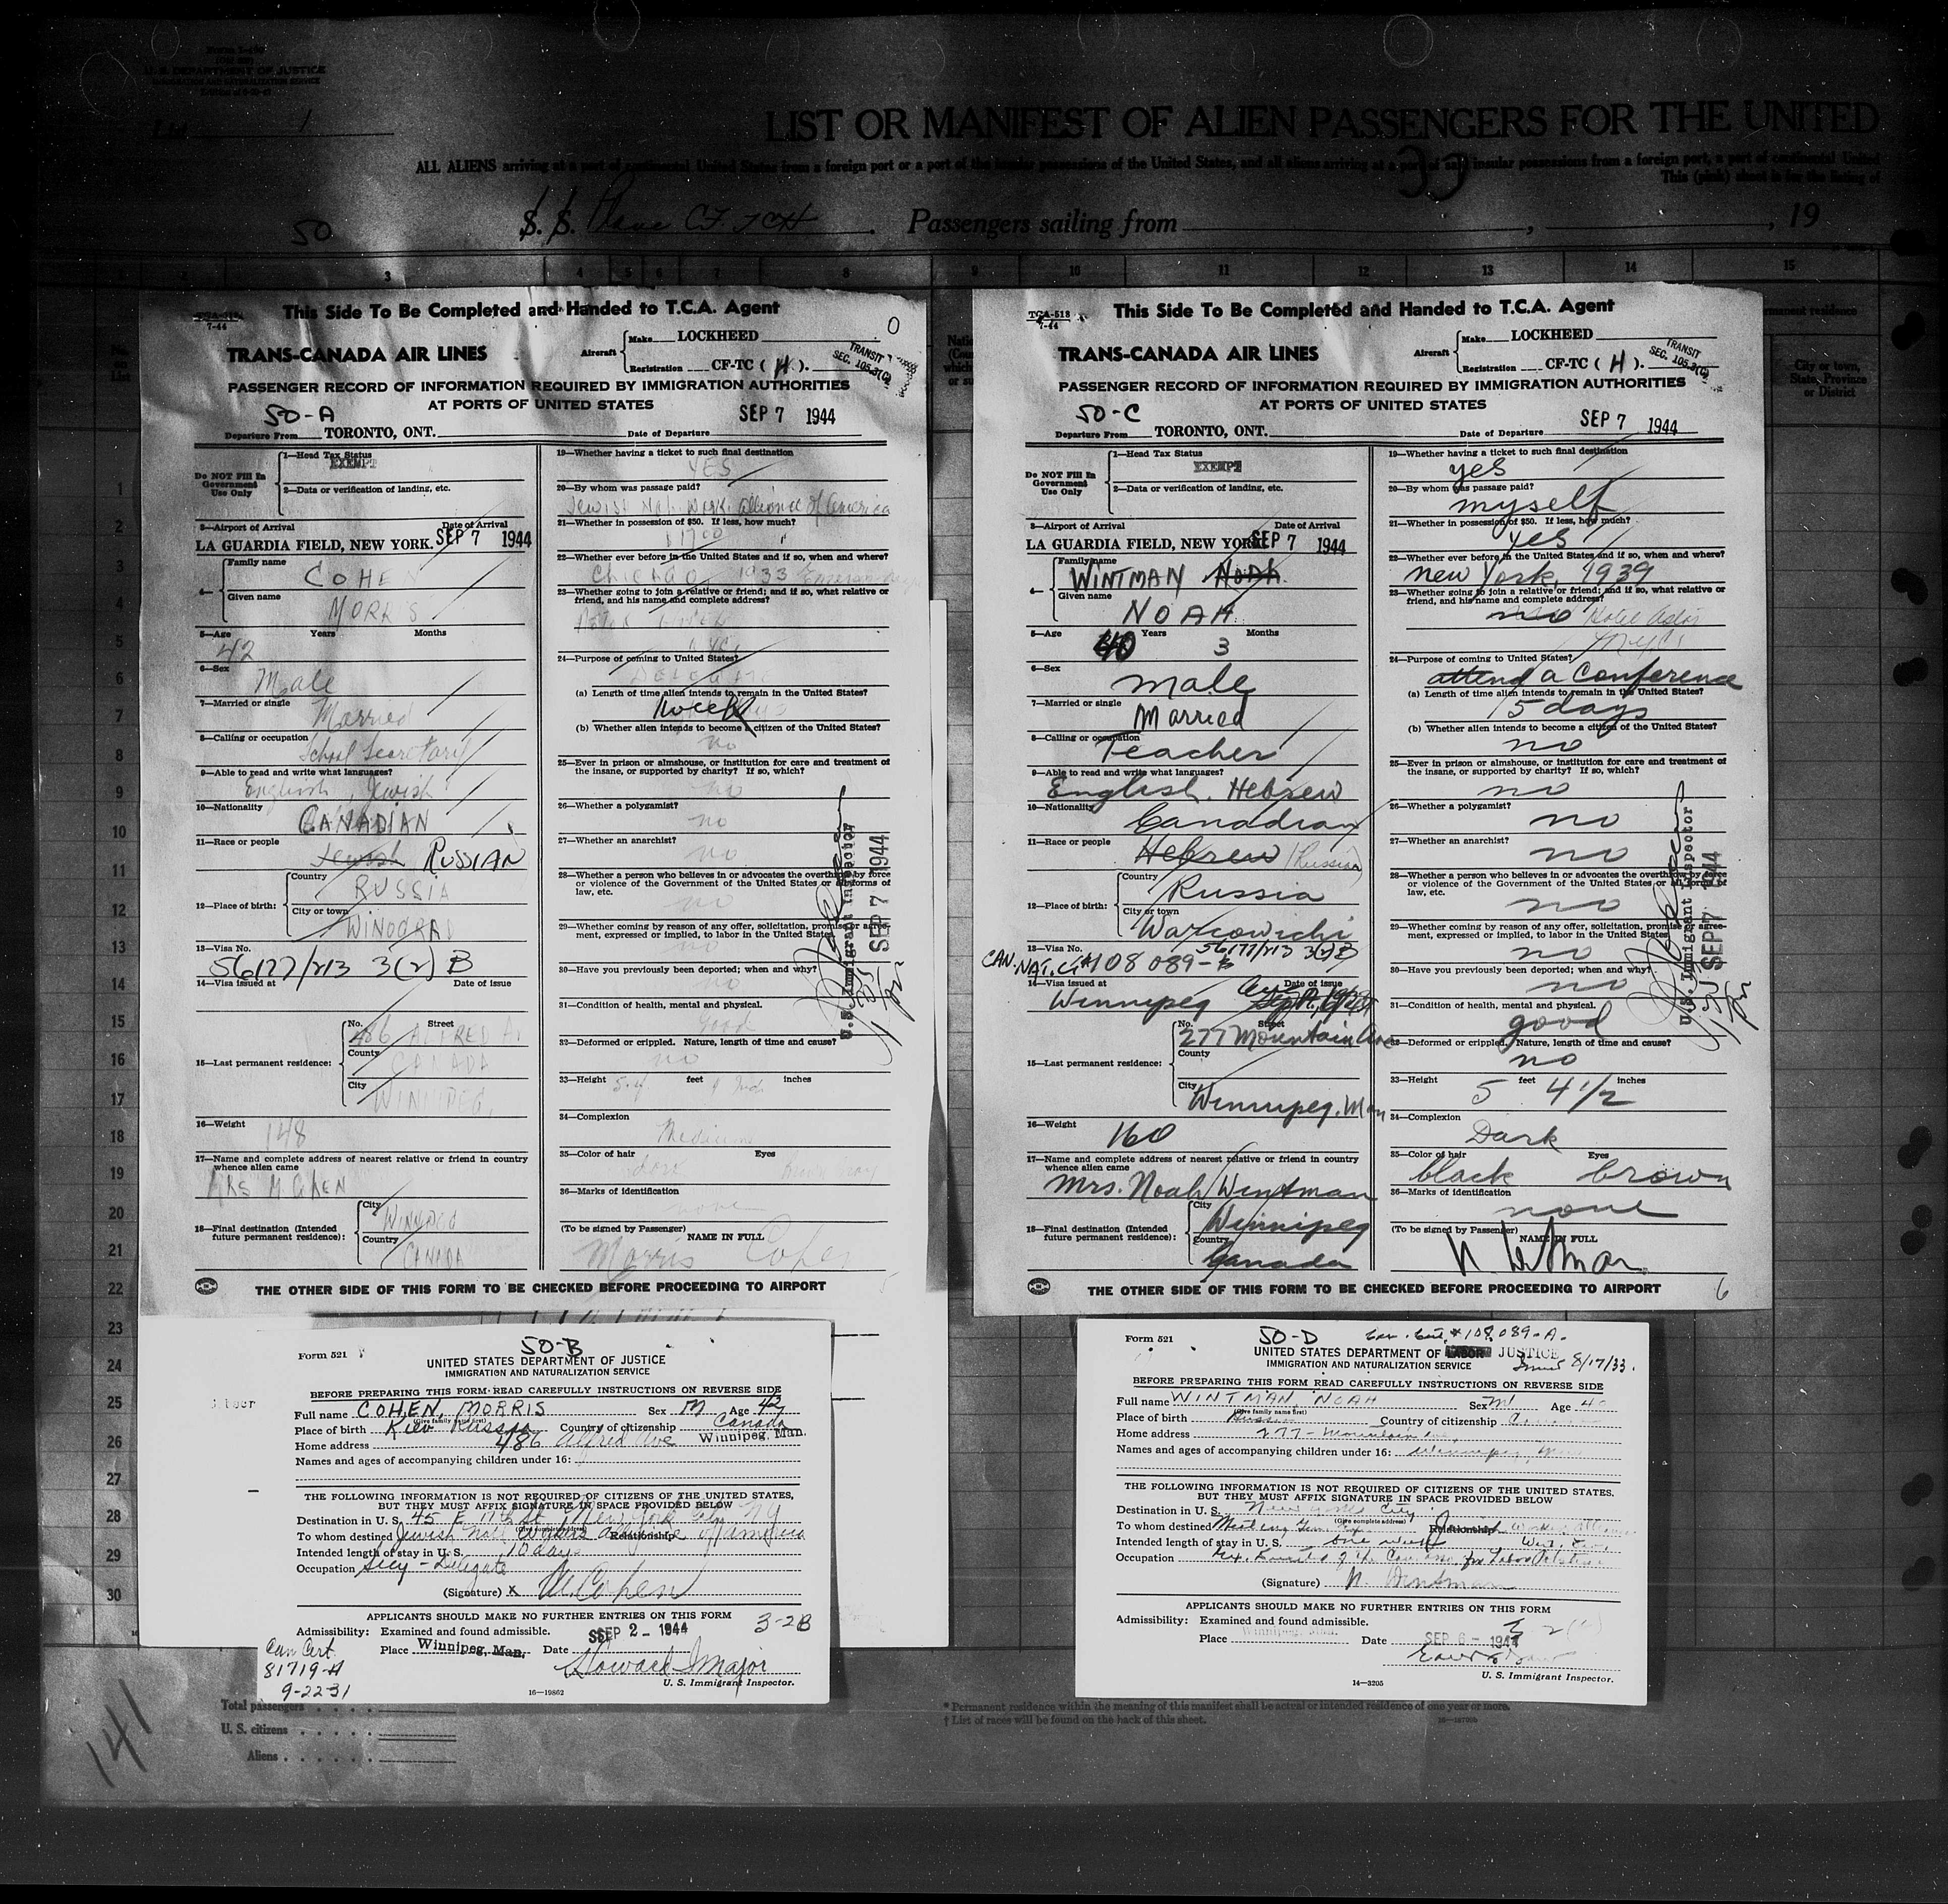 Form I-466
U. S. DEPARTMENT OF JUSTICE
IMMIGRATION AND NATURALIZATION SERVICE
List 1
LIST OR MANIFEST OF ALIEN PASSENGERS FOR THE UNITED
ALL ALIENS arriving at a port of continental United States from a foreign port or a port of the insular possessions of the United States, and all aliens arriving at a port of said insular possessions from a foreign port, a port of continental United
This (pink) sheet is for the listing of
33
50
S. S. Plane CF. TCH. Passengers sailing from , , 19
2 3 4 5 6 7 8 9 10 11 12 13 14 15
This Side To Be Completed and Handed to T.C.A. Agent
7-44
O
TRANS-CANADA AIR LINES
Aircraft
Make LOCKHEED
Registration CF-TC ( H ).
TRANSIT
SEC. 105.3(C)
PASSENGER RECORD OF INFORMATION REQUIRED BY IMMIGRATION AUTHORITIES
AT PORTS OF UNITED STATES
50-A
SEP 7 1944
Departure From TORONTO, ONT. Date of Departure
Do NOT Fill In Government Use Only
1—Head Tax Status
EXEMPT
2—Data or verification of landing, etc.
3—Airport of Arrival Date of Arrival
LA GUARDIA FIELD, NEW YORK. SEP 7 1944
4— Family name
COHE
Given name
MORRIS
5—Age Years Months
42
6—Sex
Male
7—Married or single
Married
8—Calling or occupation
School Secretary
9—Able to read and write what languages?
English, Jewish
10—Nationality
CANADIAN
11—Race or people
Jewish RUSSIAN
12—Place of birth:
Country
RUSSIA
City or town
WINOGRAD
13—Visa No.
56177/213 3(2) B
14—Visa issued at Date of issue
15—Last permanent residence:
No. Street
486 ALFRED A
County
CANADA
City
WINNIPEG,
16—Weight
148
17—Name and complete address of nearest relative or friend in country whence alien came
MRS M COHEN
18—Final destination (Intended future permanent residence):
City
WINNIPEG
Country
CANADA
19—Whether having a ticket to such final destination
YES
20—By whom was passage paid?
Jewish Nat. Work. Alliance of America
21—Whether in possession of $50. If less, how much?
22—Whether ever before in the United States and if so, when and where?
CHICAGO 1933
23—Whether going to join a relative or friend; and if so, what relative or friend, and his name and complete address?
24—Purpose of coming to United States?
DELEGATE
(a) Length of time alien intends to remain in the United States?
(b) Whether alien intends to become a citizen of the United States?
no
25—Ever in prison or almshouse, or institution for care and treatment of the insane, or supported by charity? If so, which?
no
26—Whether a polygamist?
no
27—Whether an anarchist?
no
28—Whether a person who believes in or advocates the overthrow by force or violence of the Government of the United States or all forms of law, etc.
no
29—Whether coming by reason of any offer, solicitation, promise or agreement, expressed or implied, to labor in the United States.
no
30—Have you previously been deported; when and why?
no
31—Condition of health, mental and physical.
Good
32—Deformed or crippled. Nature, length of time and cause?
no
33—Height feet inches
34—Complexion
Medium
35—Color of hair Eyes
36—Marks of identification
none
(To be signed by Passenger) NAME IN FULL
Morris Cohen
U.S. Immigrant Inspector
SEP 7 1944
THE OTHER SIDE OF THIS FORM TO BE CHECKED BEFORE PROCEEDING TO AIRPORT
50-B
Form 521
UNITED STATES DEPARTMENT OF JUSTICE
IMMIGRATION AND NATURALIZATION SERVICE
BEFORE PREPARING THIS FORM READ CAREFULLY INSTRUCTIONS ON REVERSE SIDE
Full name COHEN, MORRIS Sex M Age 42
(Give family name first)
Place of birth Kiev Russia Country of citizenship Canada
Home address 486 Alfred Ave Winnipeg, Man.
Names and ages of accompanying children under 16:
THE FOLLOWING INFORMATION IS NOT REQUIRED OF CITIZENS OF THE UNITED STATES,
BUT THEY MUST AFFIX SIGNATURE IN SPACE PROVIDED BELOW
Destination in U. S. 45 E 17th St New York City NY
(Give complete address)
To whom destined Jewish Natl Workers Alliance of America Relationship
Intended length of stay in U. S. 10 days
Occupation Secy - Delegate
(Signature) x M Cohen
APPLICANTS SHOULD MAKE NO FURTHER ENTRIES ON THIS FORM
Admissibility: Examined and found admissible. SEP 2 - 1944 3-2B
Place Winnipeg, Man. Date
Howard Major
U. S. Immigrant Inspector.
16—19862
Can Cert.
81719-A
9-22-31
This Side To Be Completed and Handed to T.C.A. Agent
TCA-518
7-44
TRANS-CANADA AIR LINES
Aircraft
Make LOCKHEED
Registration CF-TC ( H ).
TRANSIT
SEC. 105.3(C)
PASSENGER RECORD OF INFORMATION REQUIRED BY IMMIGRATION AUTHORITIES
AT PORTS OF UNITED STATES
50-C
SEP 7 1944
Departure From TORONTO, ONT. Date of Departure
Do NOT Fill In Government Use Only
1—Head Tax Status
EXEMPT
2—Data or verification of landing, etc.
3—Airport of Arrival Date of Arrival
LA GUARDIA FIELD, NEW YORK. SEP 7 1944
4— Family name
WINTMAN NOAH
Given name
NOAH
5—Age Years Months
40 3
6—Sex
male
7—Married or single
Married
8—Calling or occupation
Teacher
9—Able to read and write what languages?
English. Hebrew
10—Nationality
Canadian
11—Race or people
Hebrew (Russian)
12—Place of birth:
Country
Russia
City or town
Warcowichi
13—Visa No. 56177/213 3(2)B
CAN. NAT. C# 108089-B
14—Visa issued at Date of issue
Winnipeg
15—Last permanent residence:
No. Street
277 Mountain Ave
County
City
Winnipeg. Man
16—Weight
160
17—Name and complete address of nearest relative or friend in country whence alien came
Mrs. Noah Wintman
18—Final destination (Intended future permanent residence):
City
Winnipeg
Country
Canada
19—Whether having a ticket to such final destination
yes
20—By whom was passage paid?
myself
21—Whether in possession of $50. If less, how much?
yes
22—Whether ever before in the United States and if so, when and where?
New York, 1939
23—Whether going to join a relative or friend; and if so, what relative or friend, and his name and complete address?
no Hotel Astor
NYC
24—Purpose of coming to United States?
attend a Conference
(a) Length of time alien intends to remain in the United States?
15 days
(b) Whether alien intends to become a citizen of the United States?
no
25—Ever in prison or almshouse, or institution for care and treatment of the insane, or supported by charity? If so, which?
no
26—Whether a polygamist?
no
27—Whether an anarchist?
no
28—Whether a person who believes in or advocates the overthrow by force or violence of the Government of the United States or all forms of law, etc.
no
29—Whether coming by reason of any offer, solicitation, promise or agreement, expressed or implied, to labor in the United States.
no
30—Have you previously been deported; when and why?
no
31—Condition of health, mental and physical.
good
32—Deformed or crippled. Nature, length of time and cause?
no
33—Height feet inches
5 4 1/2
34—Complexion
Dark
35—Color of hair Eyes
black brown
36—Marks of identification
none
(To be signed by Passenger) NAME IN FULL
N. Wintman
U.S. Immigrant Inspector
SEP 7 1944
THE OTHER SIDE OF THIS FORM TO BE CHECKED BEFORE PROCEEDING TO AIRPORT
6
Form 521
50-D Can. Cert. # 108089-A.
UNITED STATES DEPARTMENT OF LABOR JUSTICE
IMMIGRATION AND NATURALIZATION SERVICE
Issued 8/17/33.
BEFORE PREPARING THIS FORM READ CAREFULLY INSTRUCTIONS ON REVERSE SIDE
Full name WINTMAN, NOAH Sex M Age 40
(Give family name first)
Place of birth Russia Country of citizenship
Home address 277 - Mountain Ave.
Names and ages of accompanying children under 16: Winnipeg, Man
THE FOLLOWING INFORMATION IS NOT REQUIRED OF CITIZENS OF THE UNITED STATES,
BUT THEY MUST AFFIX SIGNATURE IN SPACE PROVIDED BELOW
Destination in U. S. New York City
(Give complete address)
To whom destined Relationship
Intended length of stay in U. S. one week
Occupation
(Signature) N. Wintman
APPLICANTS SHOULD MAKE NO FURTHER ENTRIES ON THIS FORM
Admissibility: Examined and found admissible.
Place Winnipeg, Man. Date SEP 6 - 1944
U. S. Immigrant Inspector.
14—3205
1
2
3
4
5
6
7
8
9
10
11
12
13
14
15
16
17
18
19
20
21
22
23
24
25
26
27
28
29
30
Total passengers
U. S. citizens
Aliens
* Permanent residence within the meaning of this manifest shall be actual or intended residence of one year or more.
† List of races will be found on the back of this sheet.
141